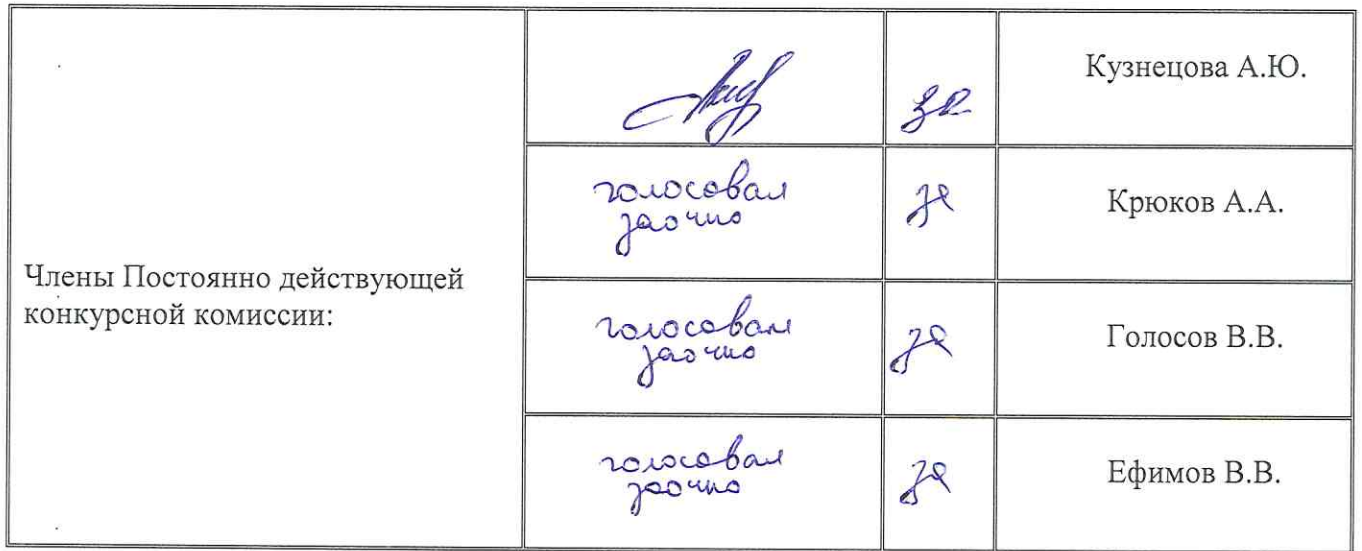 Члены Постоянно действующей
конкурсной комиссии:
за
Кузнецова А.Ю.
голосовал
заочно
за
Крюков А.А.
голосовал
заочно
за
Голосов В.В.
голосовал
заочно
за
Ефимов В.В.